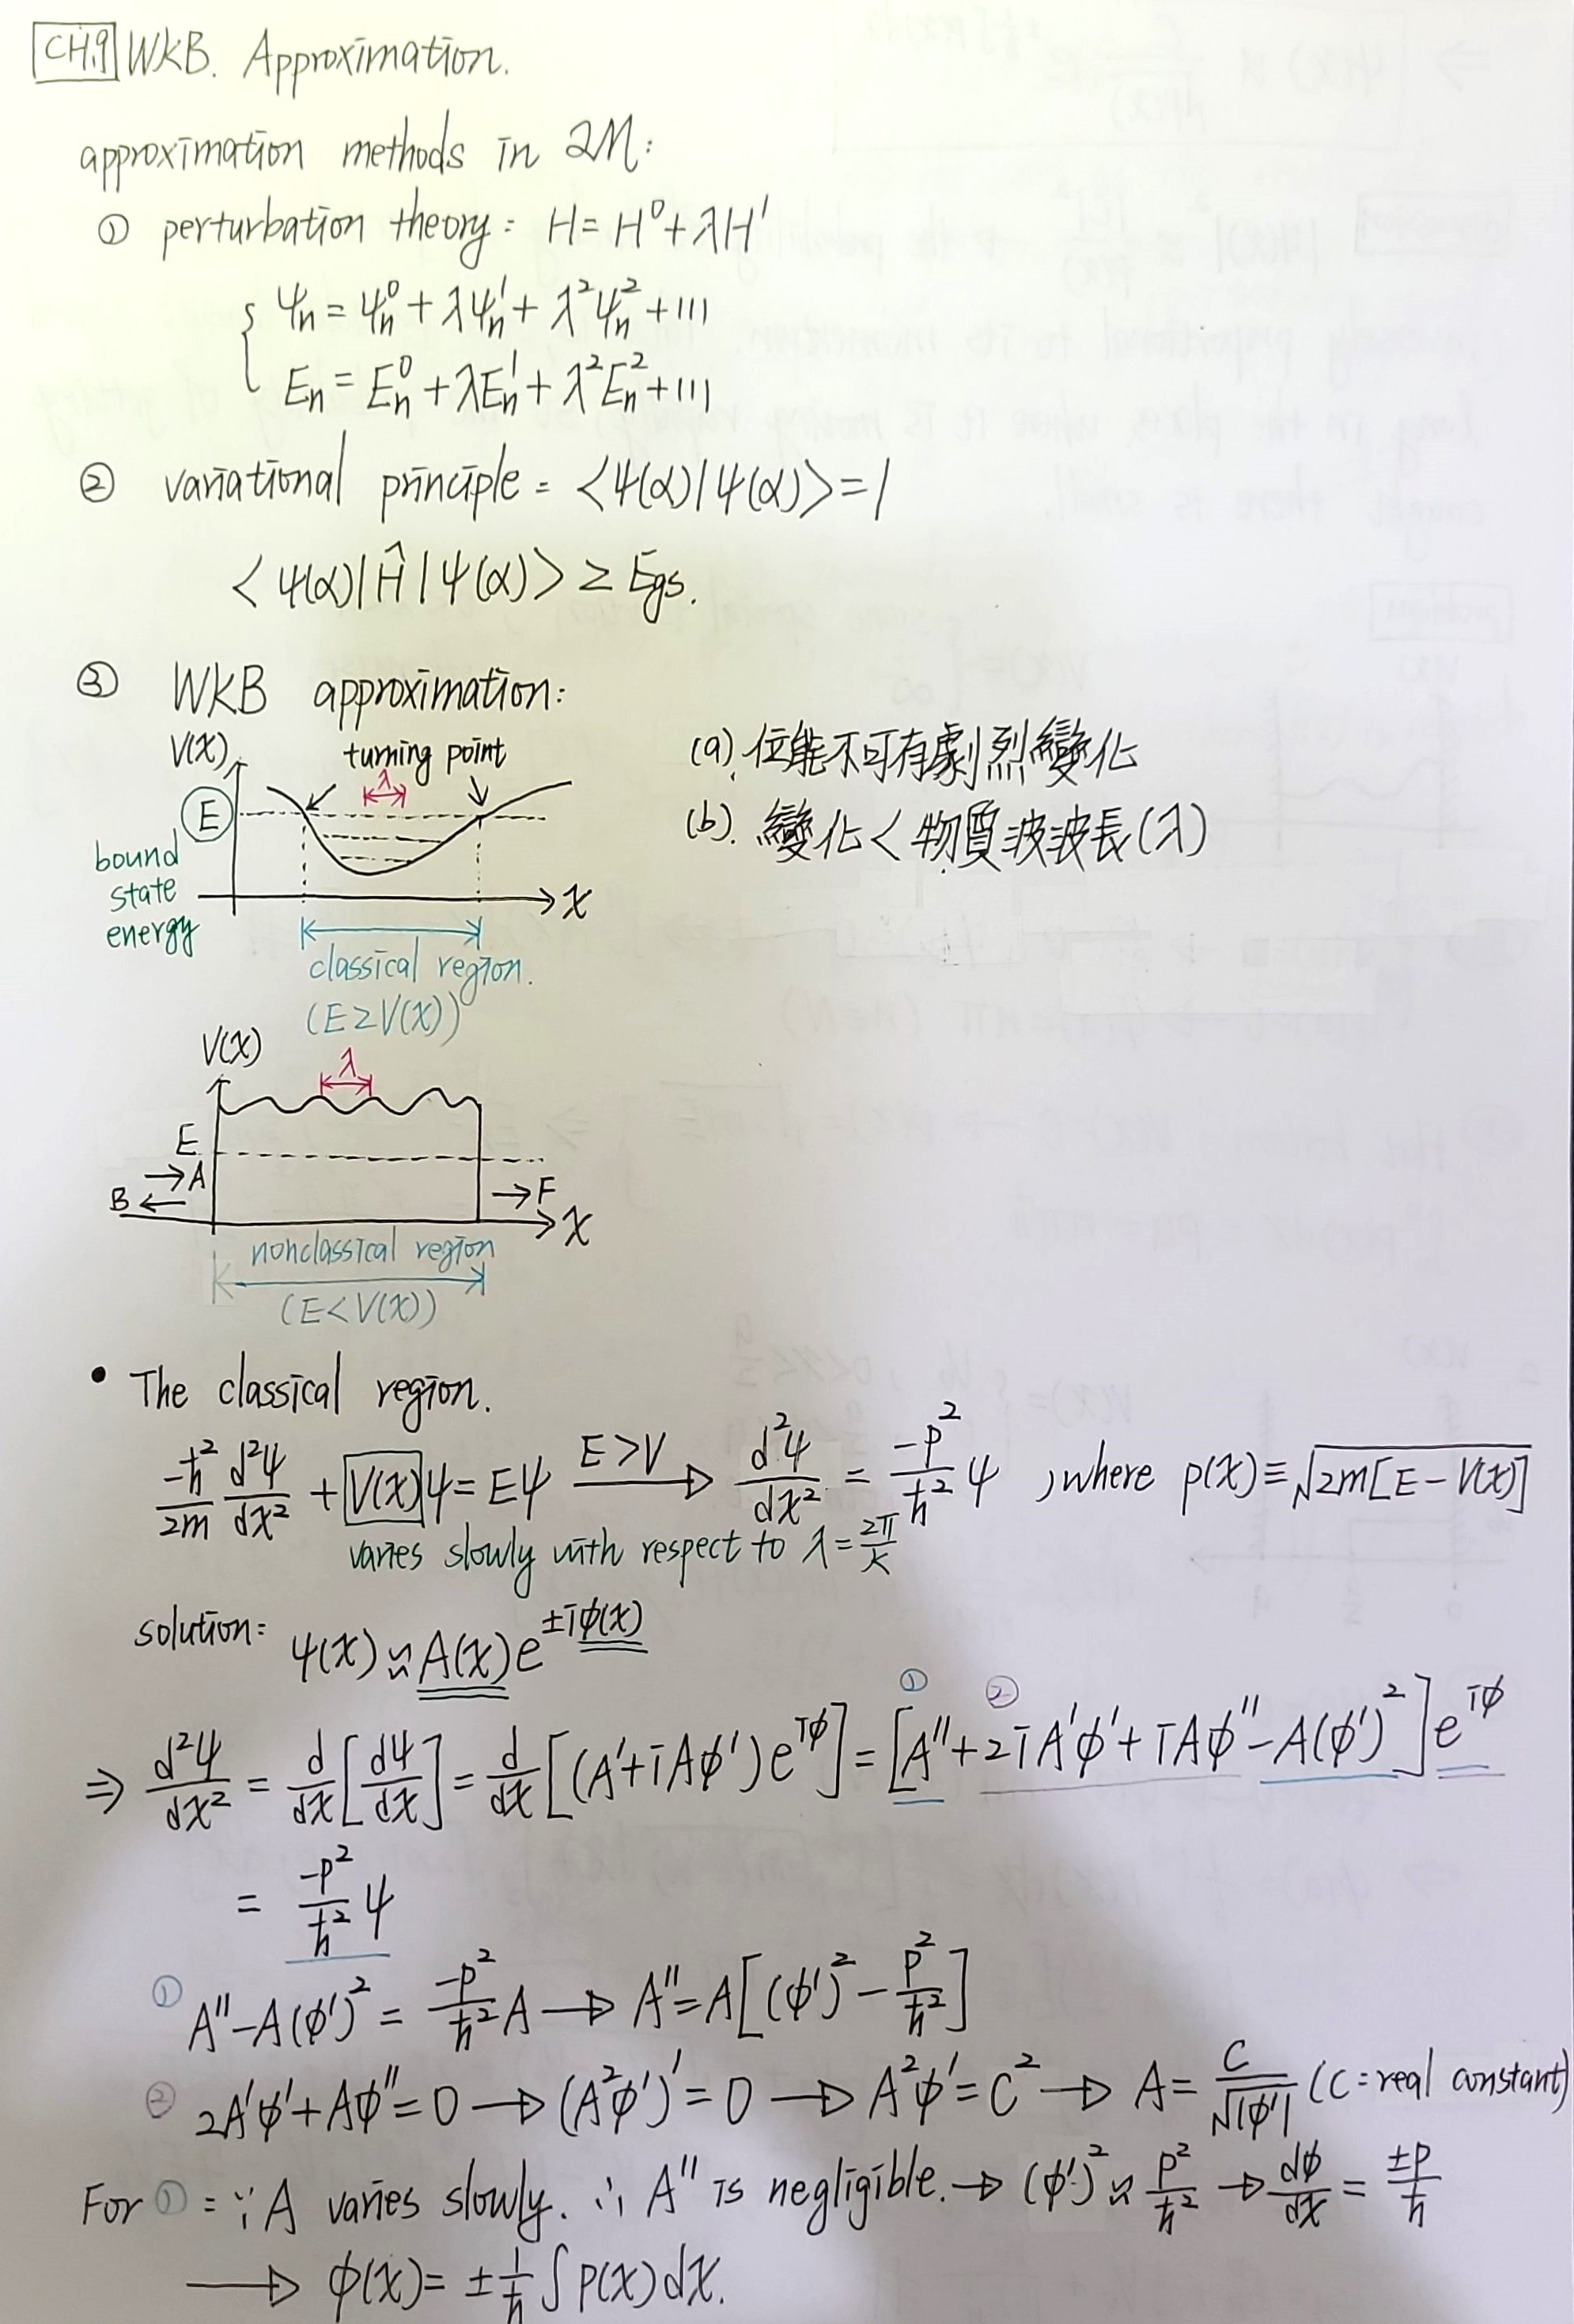 CH.9 WKB. Approximation.
approximation methods in QM:
① perturbation theory: H = H⁰ + λH'
ψₙ = ψₙ⁰ + λψₙ¹ + λ²ψₙ² + ...
Eₙ = Eₙ⁰ + λEₙ¹ + λ²Eₙ² + ...
② variational principle: <ψ(α)|ψ(α)> = 1
<ψ(α)|Ĥ|ψ(α)> ≥ Egs.
③ WKB approximation:
V(x)
turning point
λ
E
bound
state
energy
x
classical region.
(E ≥ V(x))
(a). 位能不可有劇烈變化
(b). 變化 < 物質波波長(λ)
V(x)
λ
E
→ A
B ←
→ F
x
nonclassical region
(E < V(x))
• The classical region.
-ħ²/2m d²ψ/dx² + V(x)ψ = Eψ E>V → d²ψ/dx² = -p²/ħ² ψ , where p(x) ≡ √2m[E - V(x)]
varies slowly with respect to λ = 2π/k
solution: ψ(x) ≈ A(x)e^±iφ(x)
① ②
⇒ d²ψ/dx² = d/dx[dψ/dx] = d/dx[(A' + iAφ')e^iφ] = [A'' + 2iA'φ' + iAφ'' - A(φ')²]e^iφ
= -p²/ħ² ψ
① A'' - A(φ')² = -p²/ħ² A → A'' = A[(φ')² - p²/ħ²]
② 2A'φ' + Aφ'' = 0 → (A²φ')' = 0 → A²φ' = C² → A = C/√|φ'| (C = real constant)
For ① : ∵ A varies slowly. ∴ A'' is negligible. → (φ')² ≈ p²/ħ² → dφ/dx = ±p/ħ
→ φ(x) = ± 1/ħ ∫ p(x) dx.